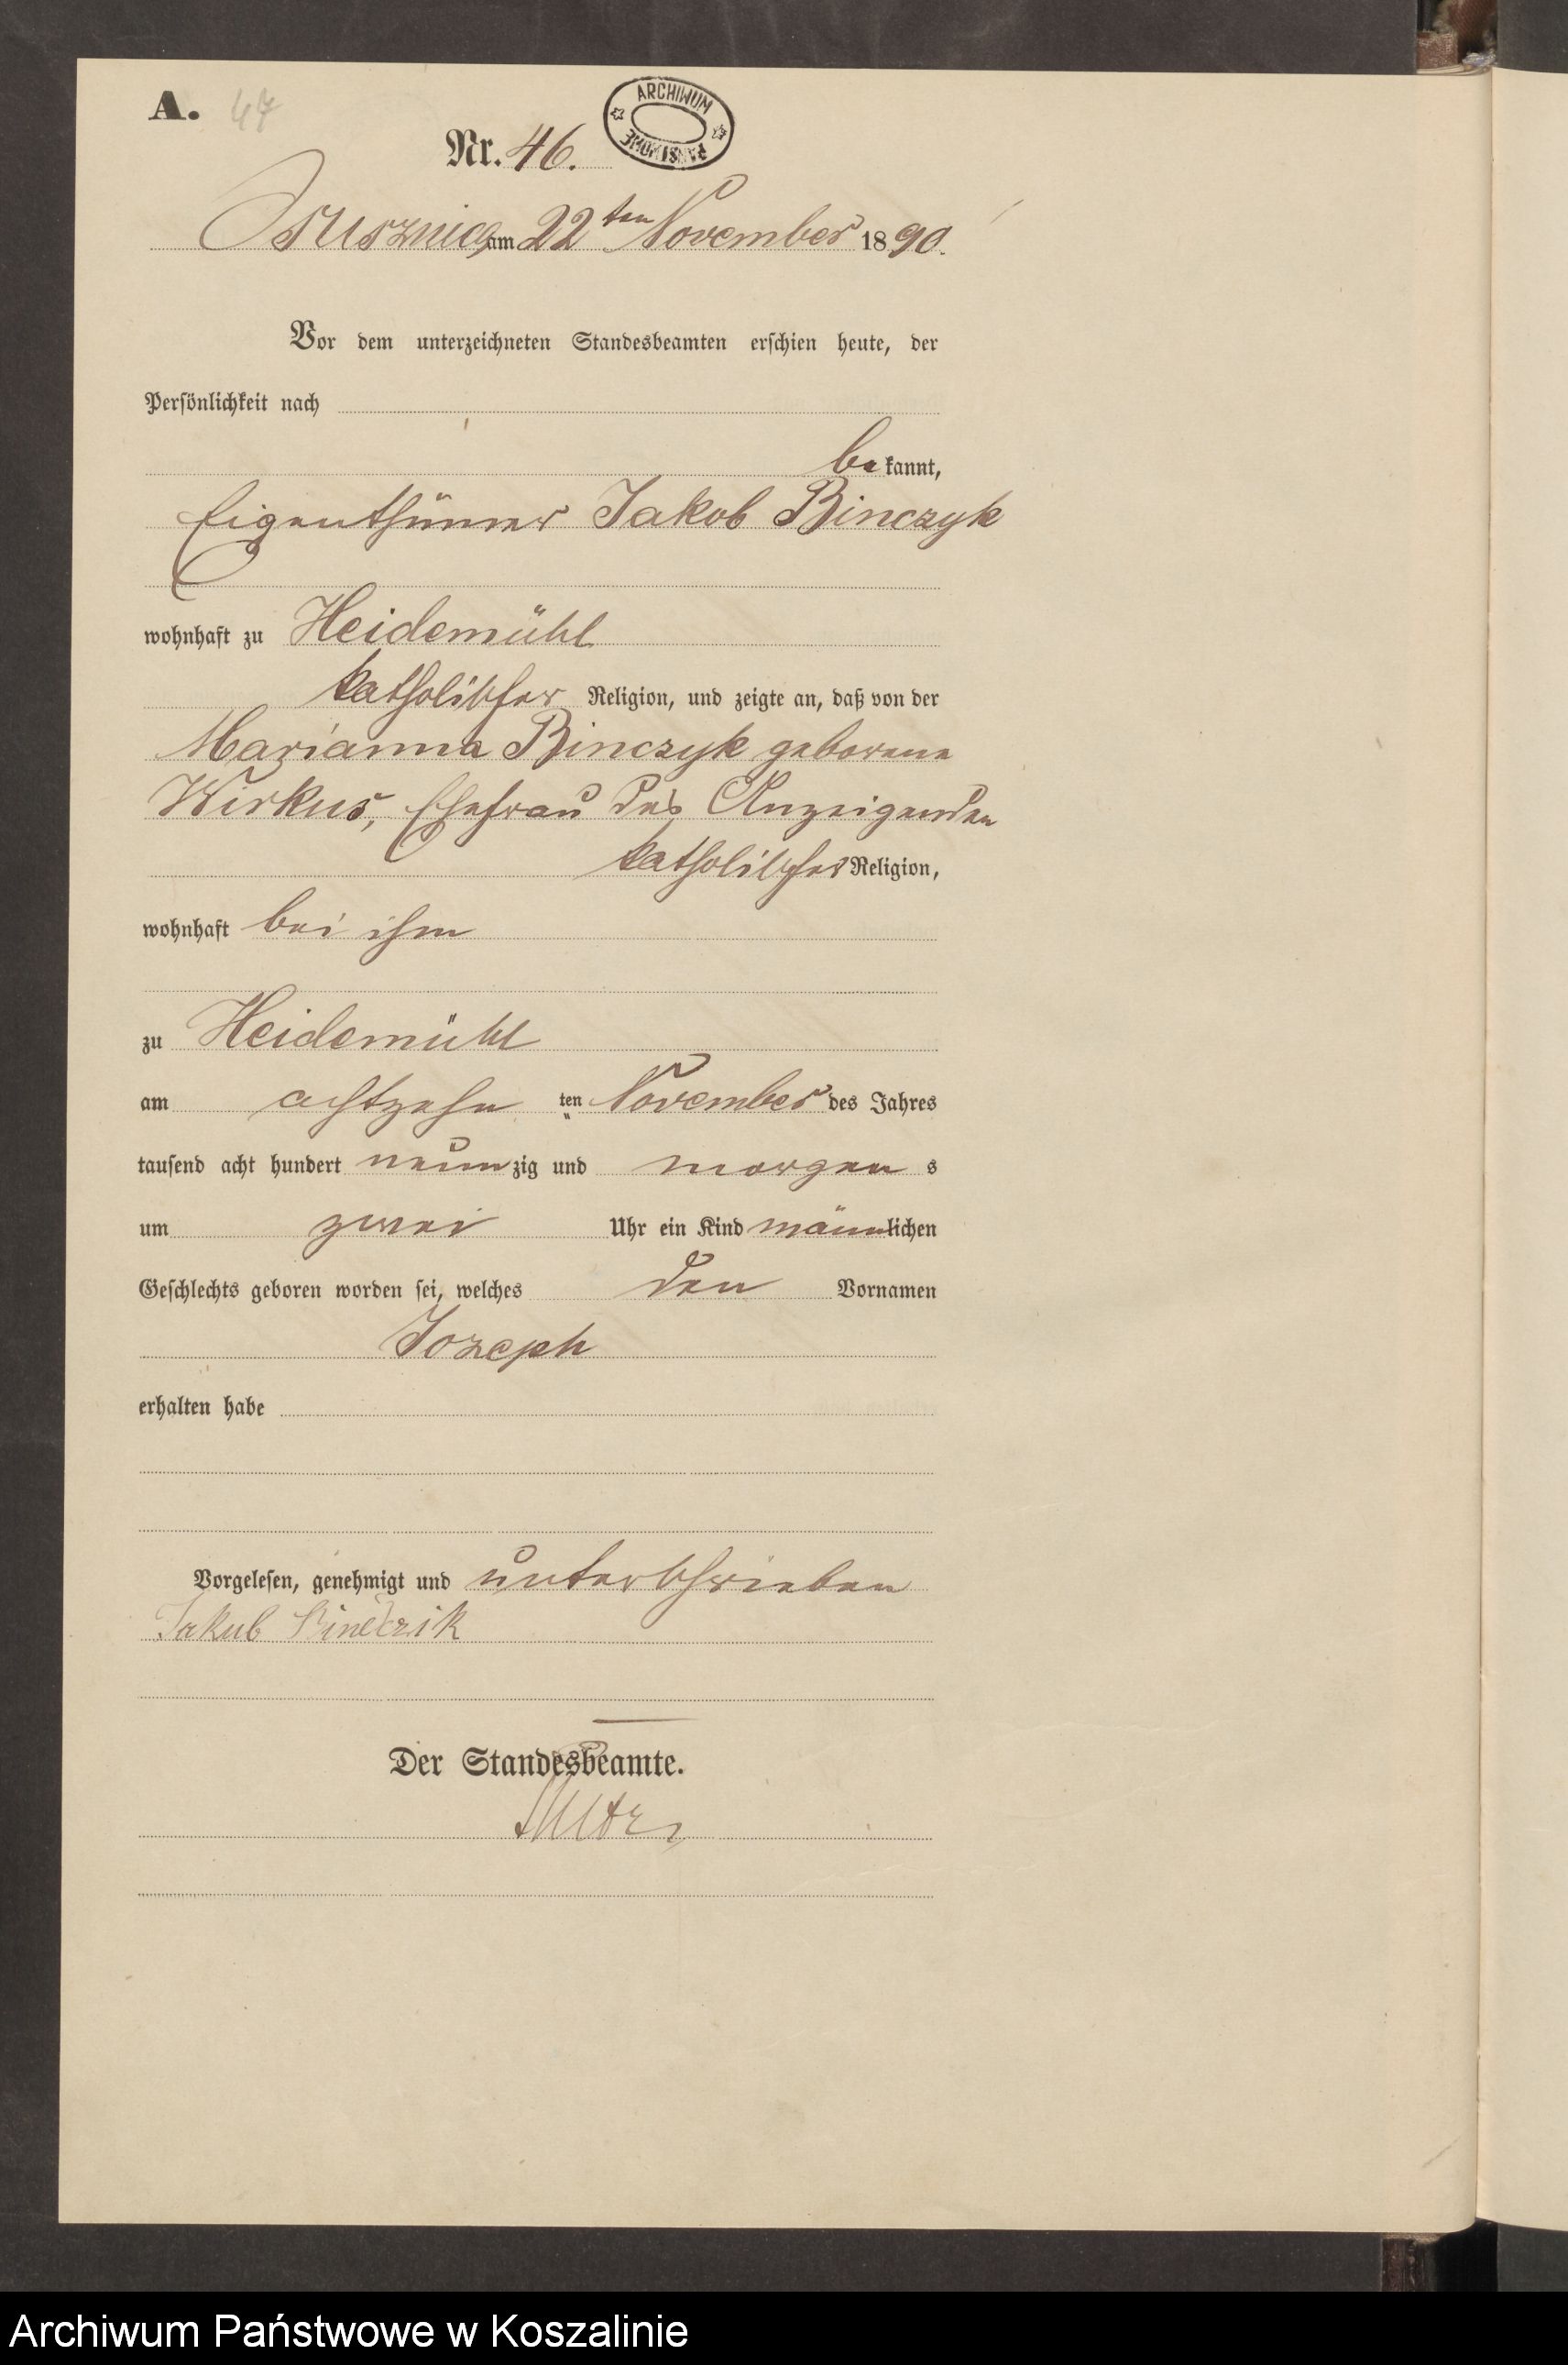 A. 47
ARCHIWUM PAŃSTWOWE
Nr. 46.
Ossusznica am 22ten November 1890.
Vor dem unterzeichneten Standesbeamten erschien heute, der
Persönlichkeit nach
be kannt,
Eigenthümer Jakob Binczyk
wohnhaft zu Heidemühl
katholischer Religion, und zeigte an, daß von der
Marianna Binczyk geborene
Wirkus, Ehefrau des Anzeigenden
katholischer Religion,
wohnhaft bei ihm
zu Heidemühl
am achtzehn ten November des Jahres
tausend acht hundert neun zig und morgen s
um zwei Uhr ein Kind männlichen
Geschlechts geboren worden sei, welches den Vornamen
Jozeph
erhalten habe
Vorgelesen, genehmigt und unterschrieben
Jakub
Der Standesbeamte.
Archiwum Państwowe w Koszalinie